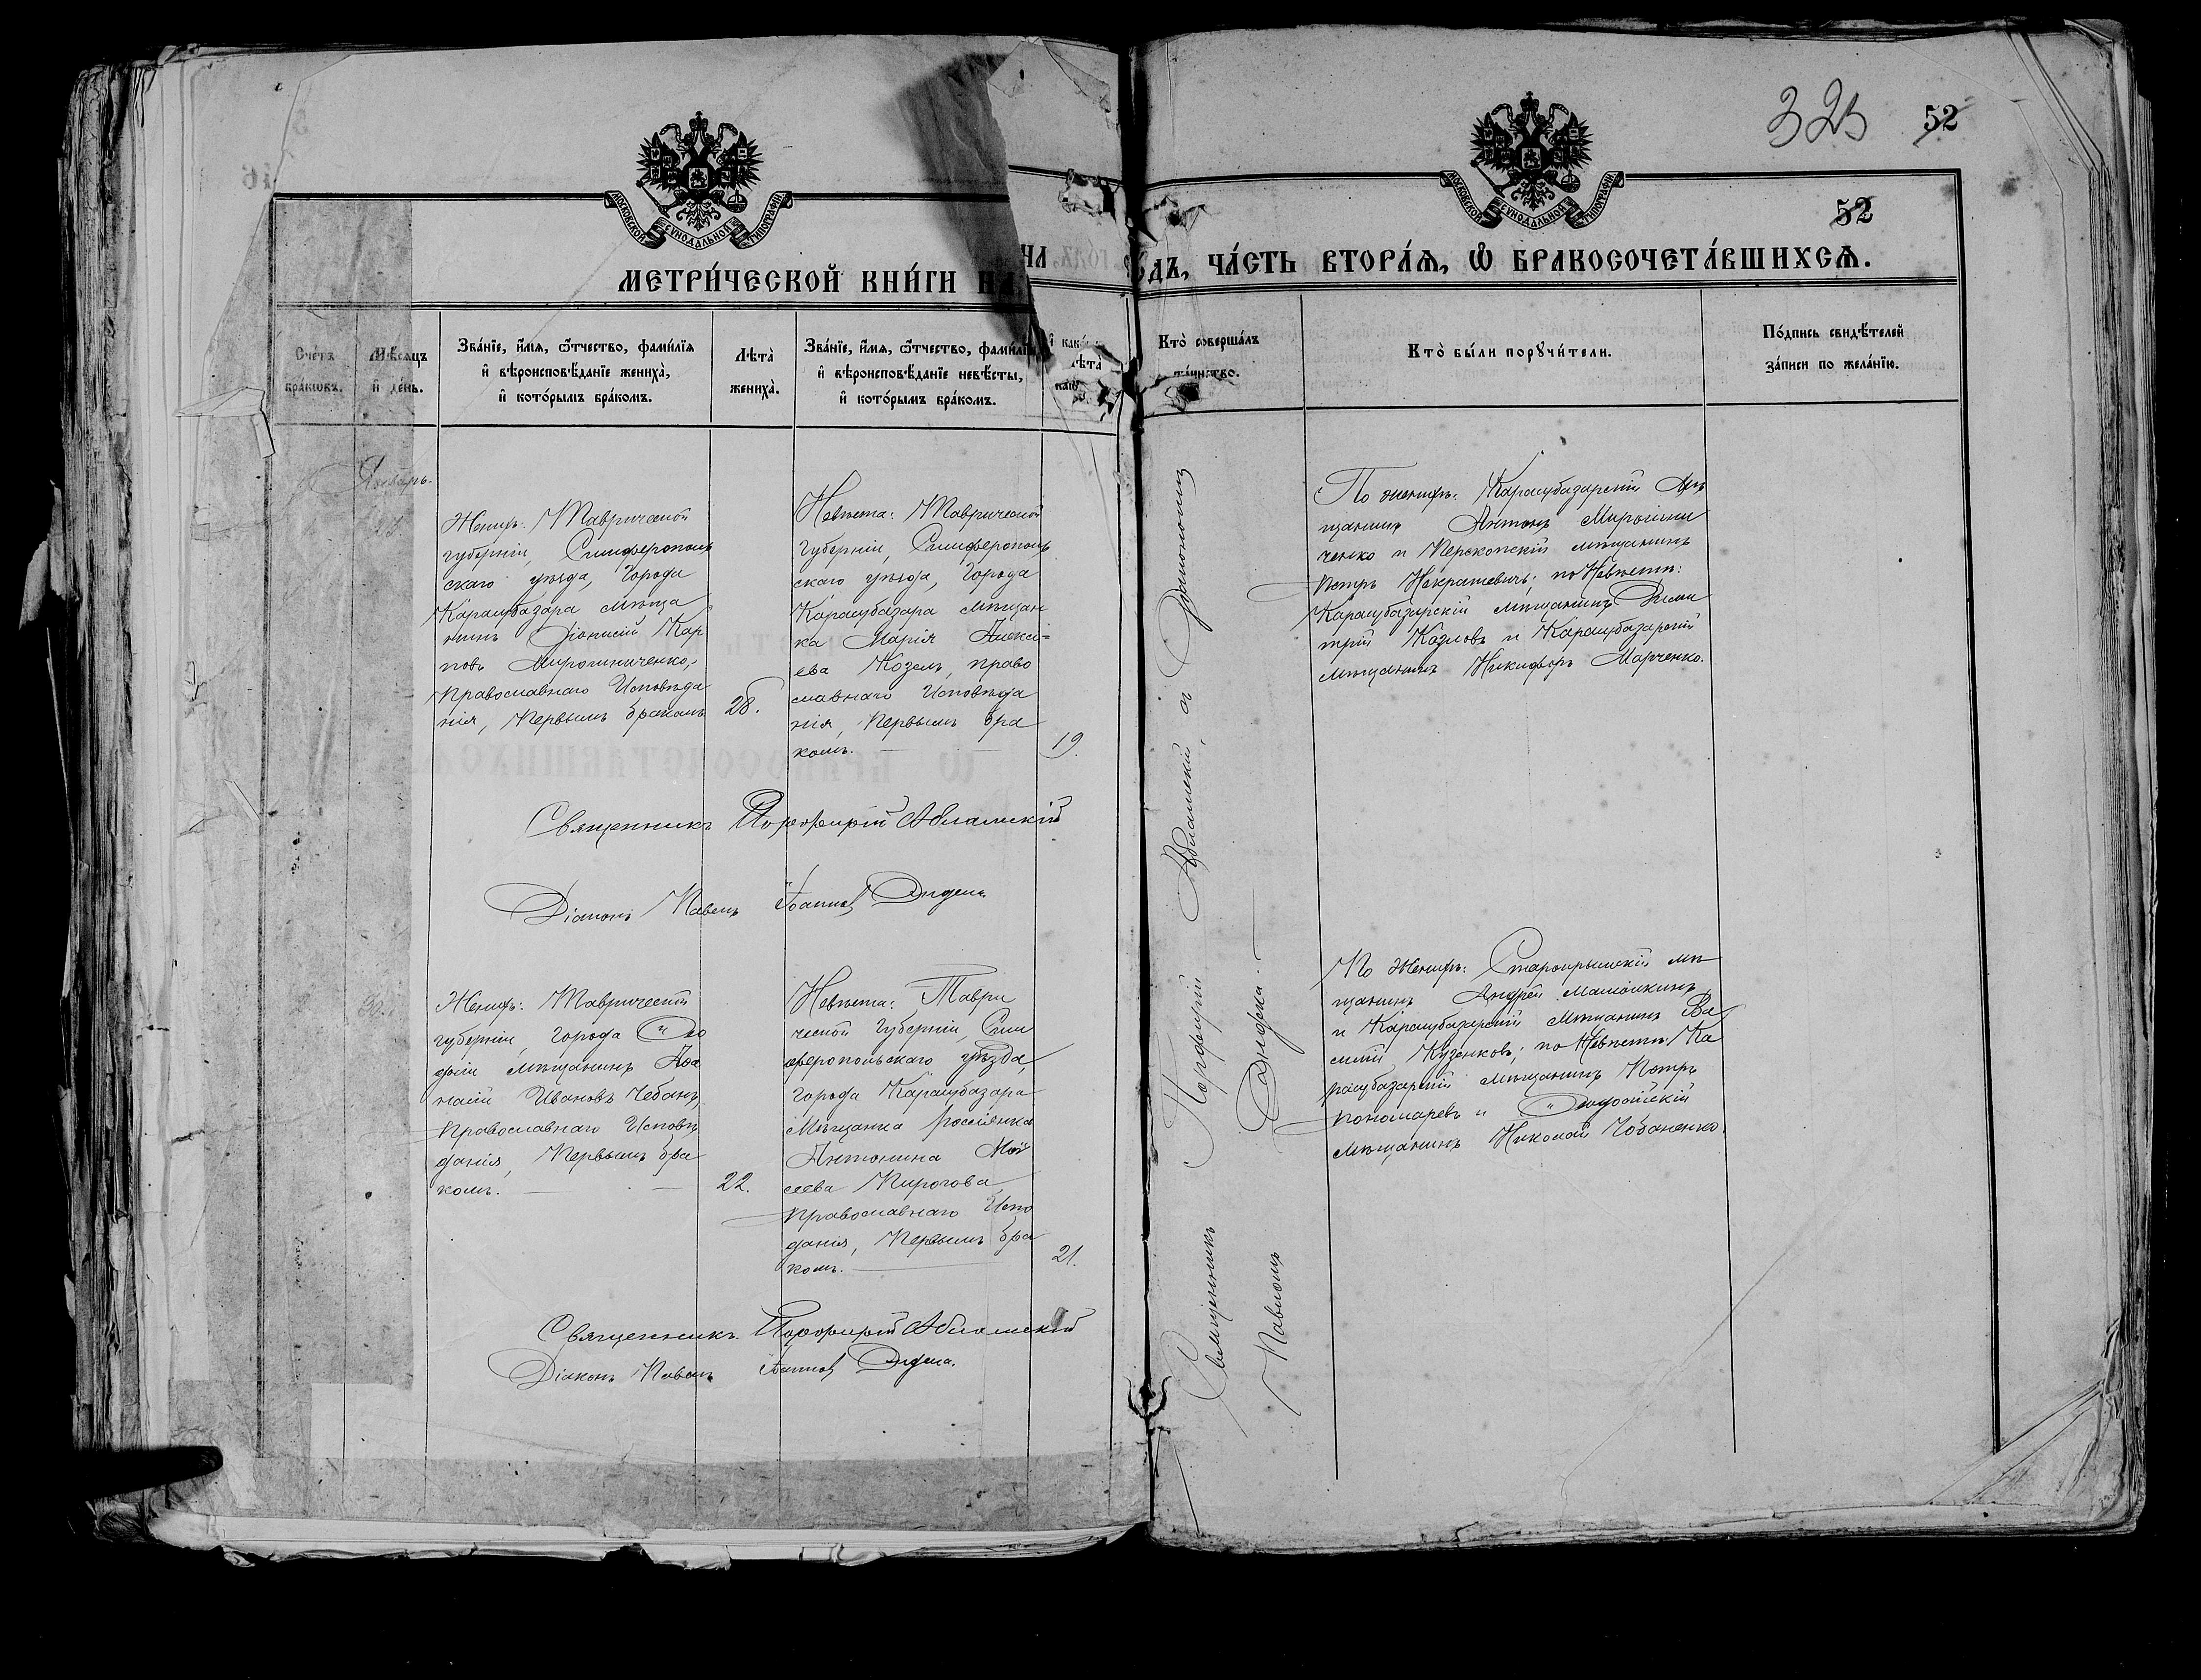 323 52
52
МОСКОВСКОЙ СѴНОДАЛЬНОЙ ТИПОГРАФІИ
МОСКОВСКОЙ СѴНОДАЛЬНОЙ ТИПОГРАФІИ
МЕТРИ́ЧЕСКОЙ КНИ́ГИ НА
ДЪ, ЧА́СТЬ ВТОРА́Ѧ, Ѿ БРАКОСОЧЕТА́ВШИХСѦ.
Сче́тъ
бра́кѡвъ.
Мѣ́сѧцъ
и҆ де́нь.
Зва́нїе, и҆́мѧ, ѻ҆́тчество, фами́лїѧ
и҆ вѣроисповѣ́данїе жениха̀,
и҆ кото́рымъ бра́комъ.
Лѣ́та
жениха̀.
Зва́нїе, и҆́мѧ, ѻ҆́тчество, фами́лїѧ
и҆ вѣроисповѣ́данїе невѣ́сты,
и҆ кото́рымъ бра́комъ.
Кто̀ соверша́лъ
та́инство.
Кто̀ бы́ли порꙋчи́тели.
По́дпись свидѣ́телей
за́писи по жела́нїю.
Январь.
Женихъ: Таврической
губерніи, Симферополь
скаго уѣзда, Города
Карасубазара мѣща
нинъ Діонисій Кар
повъ Мирошниченко,
Православнаго Исповѣда
нія, Первымъ бракомъ
28.
Невѣста: Таврической
Губерніи, Симферополь
скаго уѣзда, Города
Карасубазара мѣщан
ка Марія Алексѣ=
ева Козелъ, право
славнаго Исповѣда
нія, Первымъ бра
комъ.
19.
По женихѣ: Карасубазарскій Мѣ
щанинъ Антонъ Мирошни
ченко и Перекопскій мѣщанинъ
Петръ Некрашевичъ; по Невѣстѣ:
Карасубазарскій мѣщанинъ Дими
трій Козловъ и Карасубазарскій
мѣщанинъ Никифоръ Марченко.
Священникъ Порфирій Абламскій
Діаконъ Павелъ Іоанновъ
Женихъ: Таврической
губерніи, города Ѳео
досіи мѣщанинъ Аѳа
насій Ивановъ Чебанъ,
Православнаго Исповѣ
данія, Первымъ бра
комъ.
22.
Невѣста: Таври
ческой Губерніи, Сим
феропольскаго уѣзда,
города Карасубазара
Мѣщанка россіянка
Антонина Мой
сеева Пирогова
Православнаго Испо
данія, Первымъ бра
комъ.
21.
По Женихѣ: Старокрымскій мѣ
щанинъ Андрей
и Карасубазарскій мѣщанинъ Ва
силій Кузенковъ; по Невѣстѣ: Ка
расубазарскій мѣщанинъ Петръ
Пономаревъ и Ѳеодосійскій
мѣщанинъ Николай Чобаненко.
Священникъ Порфирій Абламскій
Діаконъ Павелъ Іоанновъ
Священникъ Порфирій Абламскій, съ Діакономъ
Павломъ